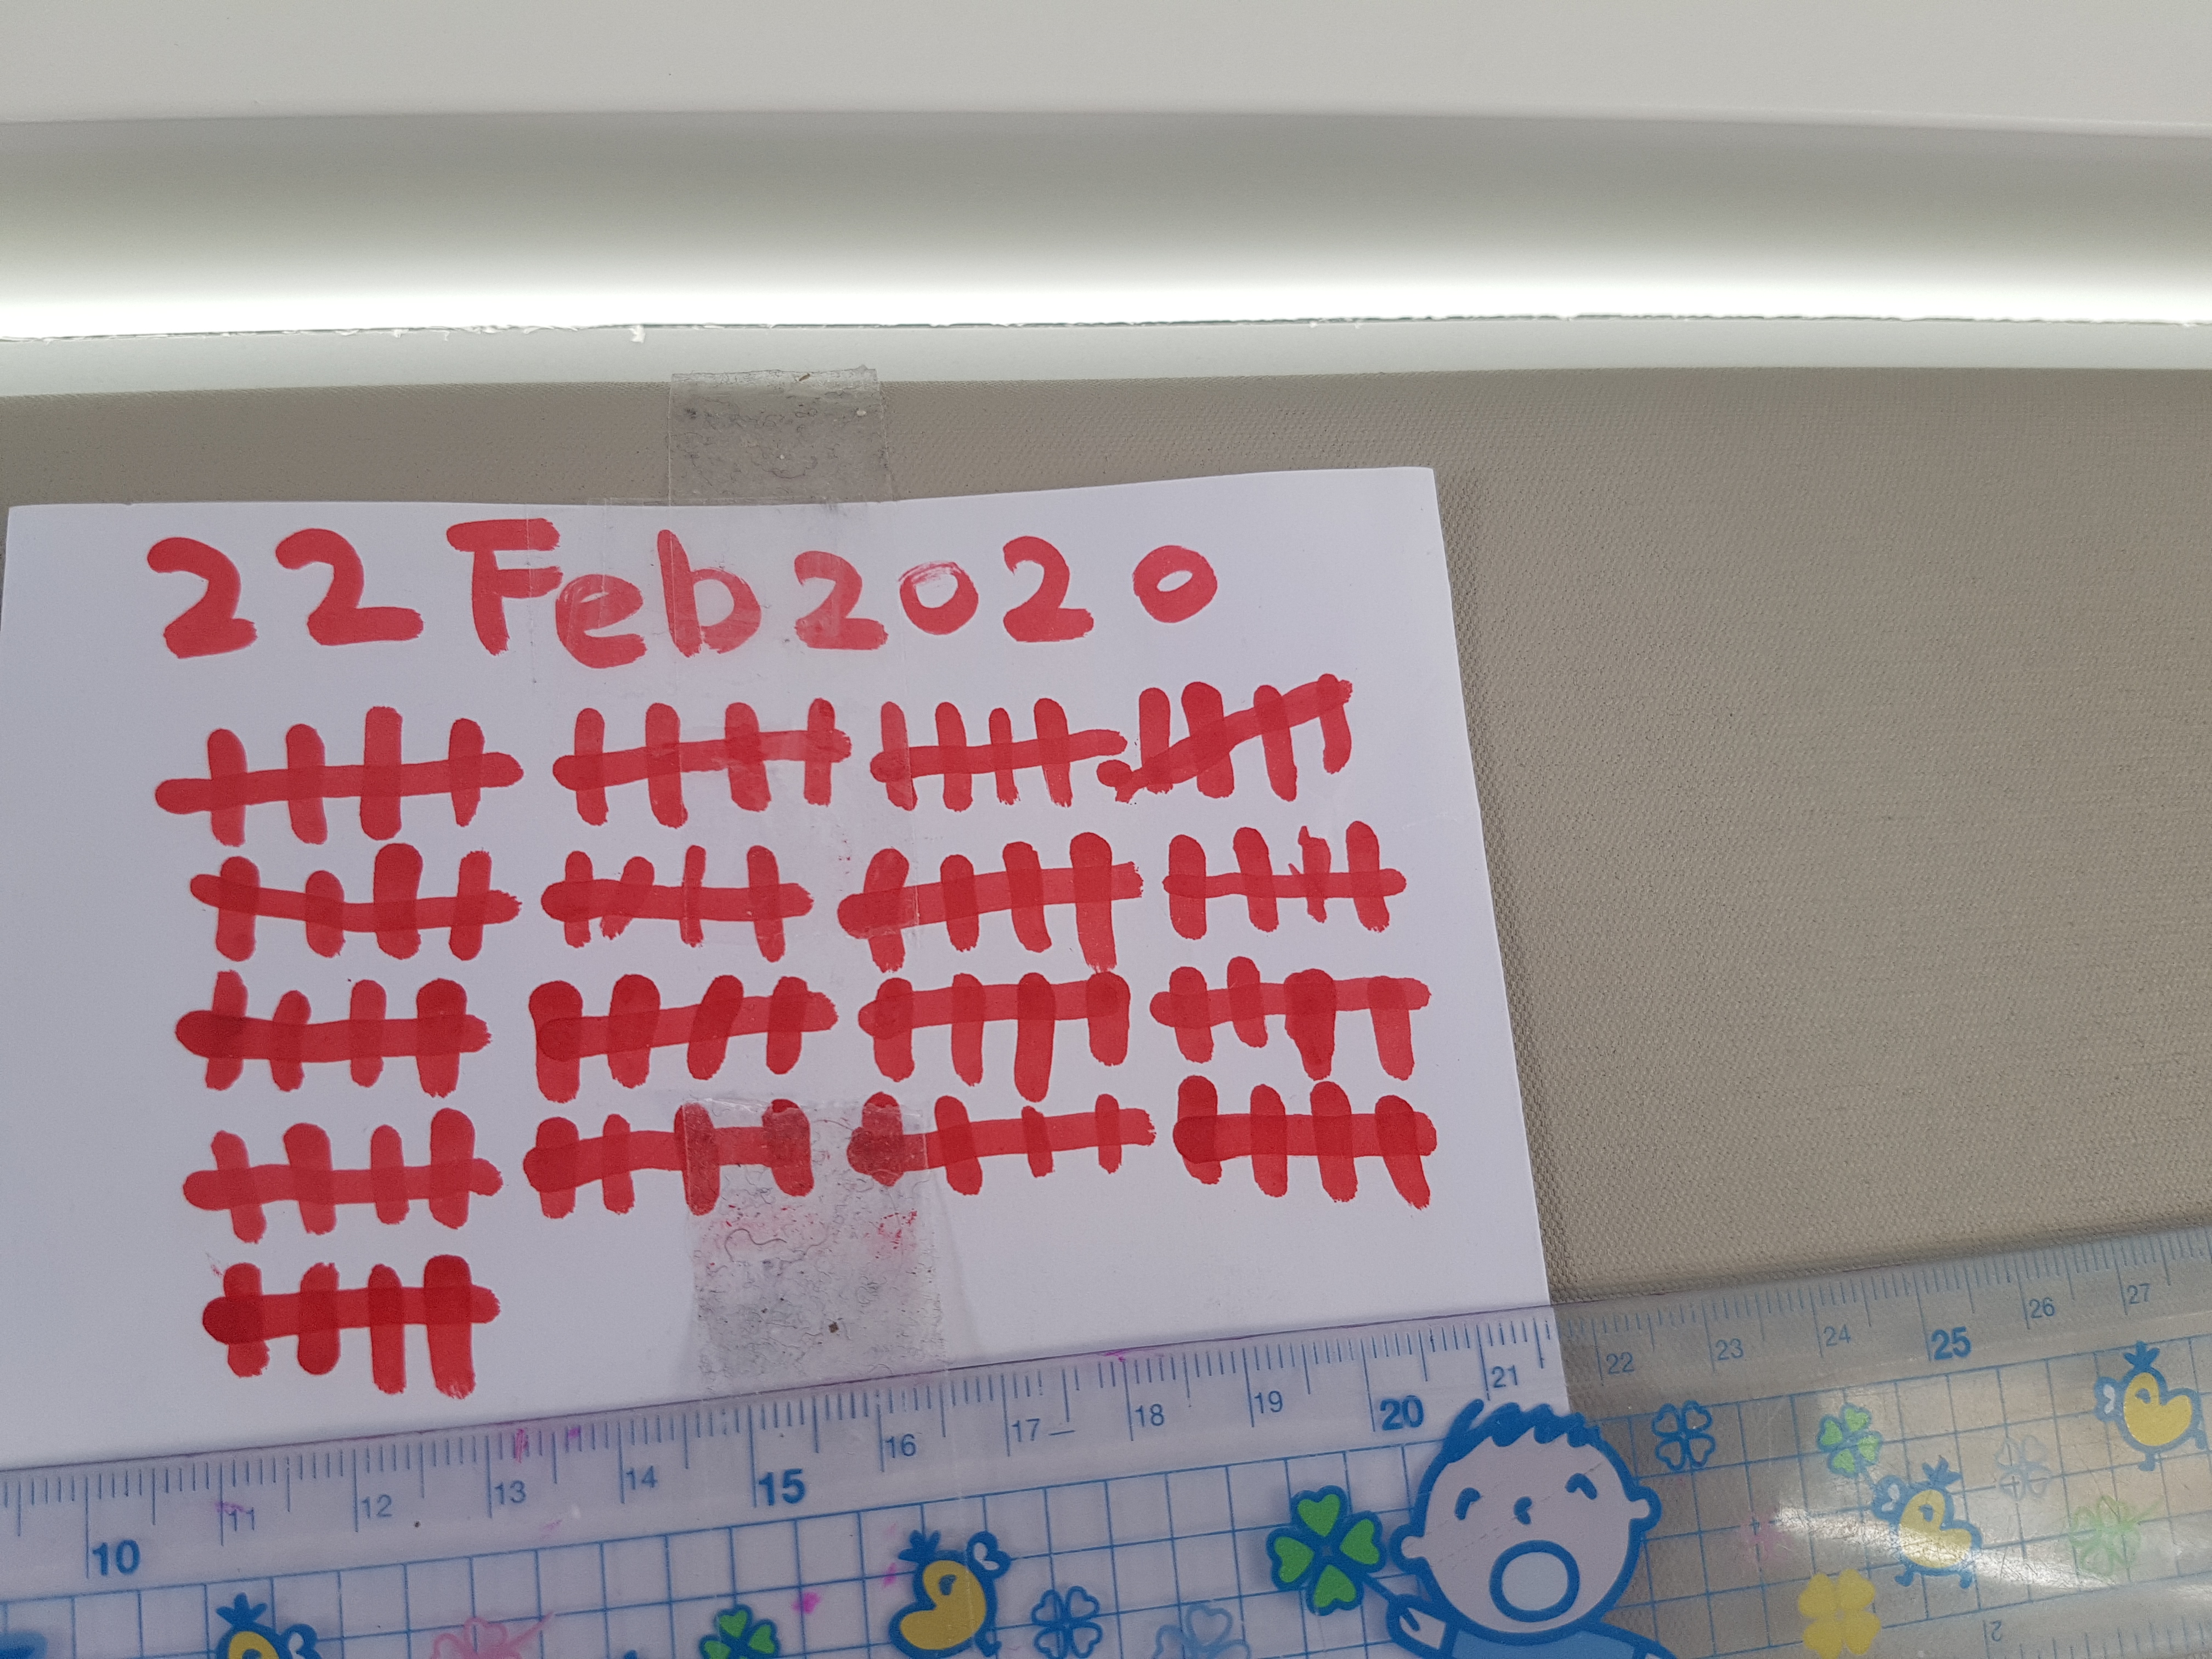 22 Feb 2020
10 11 12 13 14 15 16 17 18 19 20 21 22 23 24 25 26 27
2